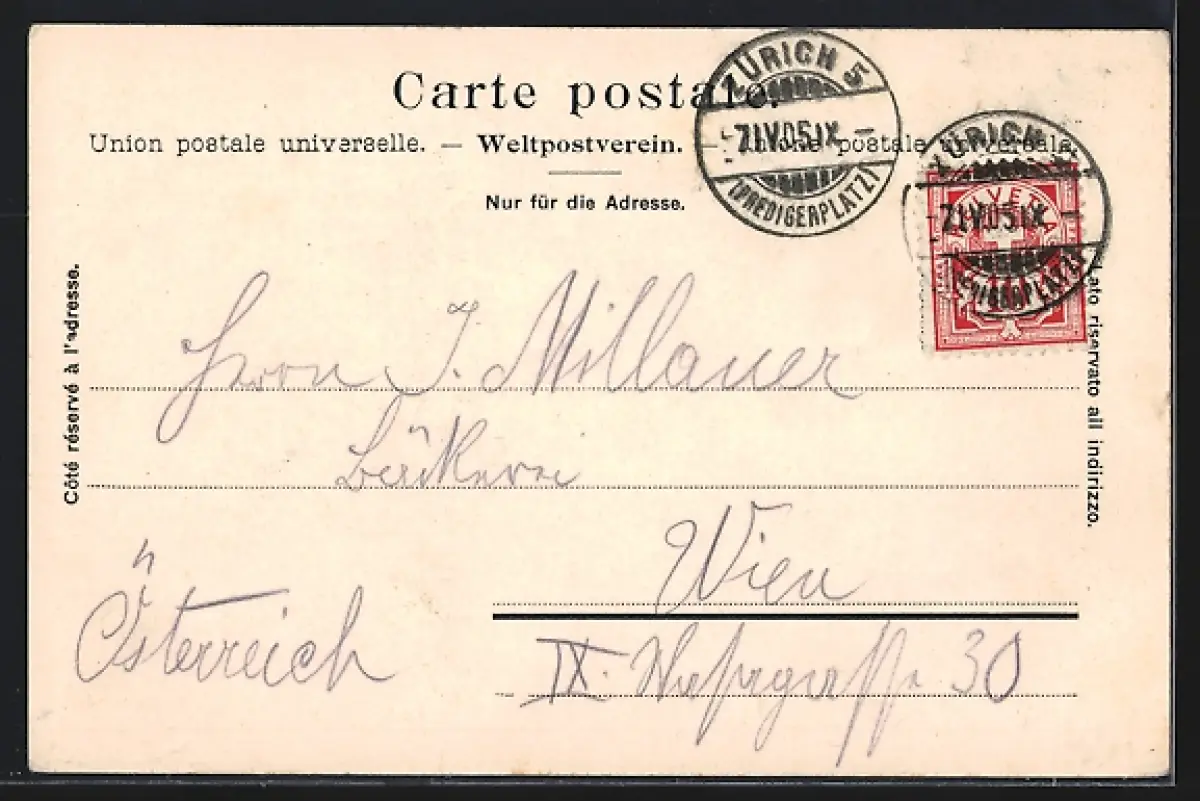 Carte postale.
Union postale universelle. — Weltpostverein. — Unione postale universale.
Nur für die Adresse.
ZÜRICH 5
7.IV.05.IX –
(PREDIGERPLATZ)
ZÜRICH
7.IV.05.IX –
(PREDIGERPLATZ)
HELVETIA
10
Côté réservé à l'adresse.
Lato riservato all indirizzo.
Herrn J. Millauer
Bäkerei
Wien
Österreich
IX. 30